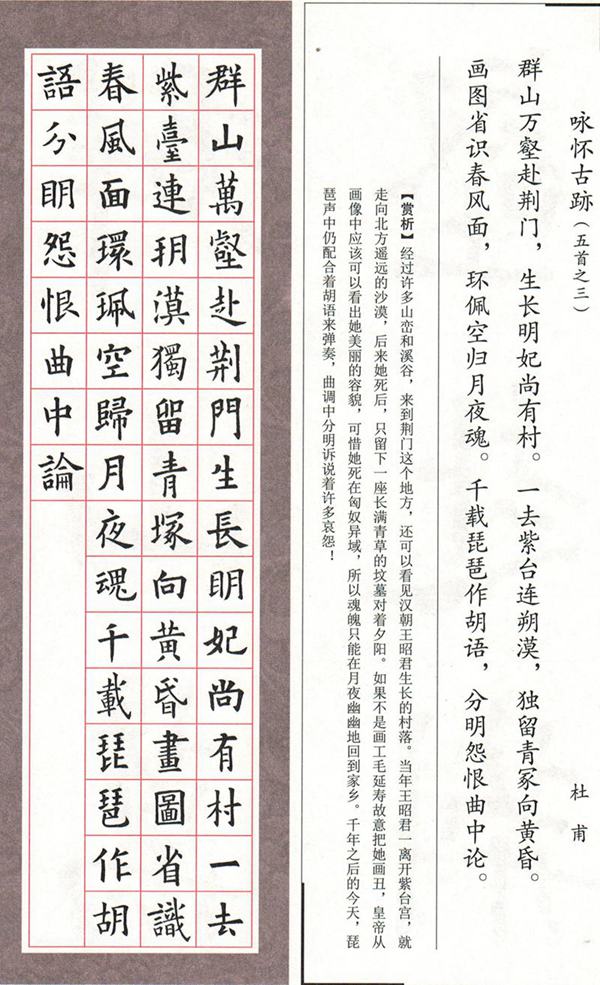 咏怀古跡（五首之三） 杜甫
群山万壑赴荆门，生长明妃尚有村。一去紫台连朔漠，独留青冢向黄昏。
画图省识春风面，环佩空归月夜魂。千载琵琶作胡语，分明怨恨曲中论。
【赏析】经过许多山峦和溪谷，来到荆门这个地方，还可以看见汉朝王昭君生长的村落。当年王昭君一离开紫台宫，就
走向北方遥远的沙漠，后来她死后，只留下一座长满青草的坟墓对着夕阳。如果不是画工毛延寿故意把她画丑，皇帝从
画像中应该可以看出她美丽的容貌，可惜她死在匈奴异域，所以魂魄只能在月夜幽幽地回到家乡。千年之后的今天，琵
琶声中仍配合着胡语来弹奏，曲调中分明诉说着许多哀怨！
群山萬壑赴荆門生長明妃尚有村一去
紫臺連朔漠獨留青塚向黄昏畫圖省識
春風面環珮空歸月夜魂千載琵琶作胡
語分明怨恨曲中論